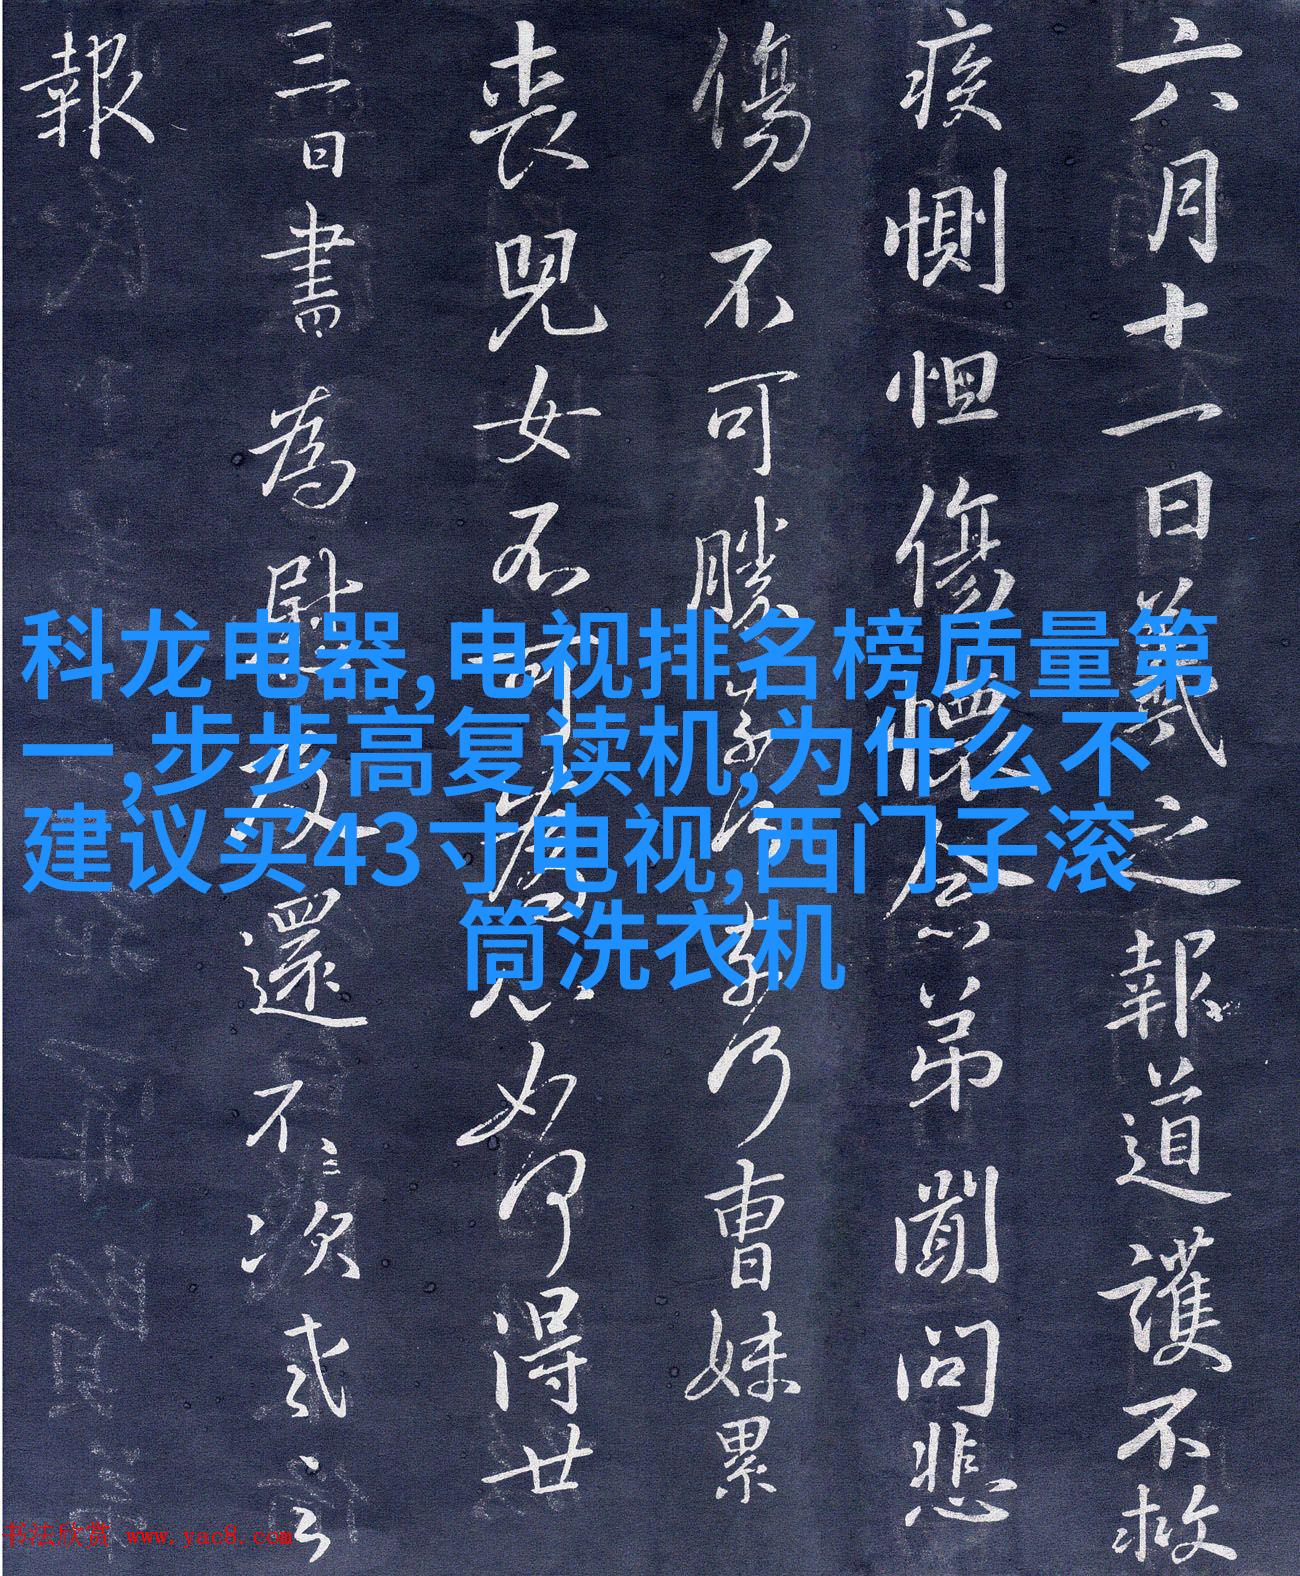 六月十一日羲之報道護不救
疾惻怛傷懷念弟聞問悲
傷不可勝乃曹妹累
喪兒女不可為心如何得廿
三日書為慰及還不次羲之
報
科龙电器,电视排名榜质量第
一,步步高复读机,为什么不
建议买43寸电视,西门子滚
筒洗衣机
书法欣赏 www.yac8.com